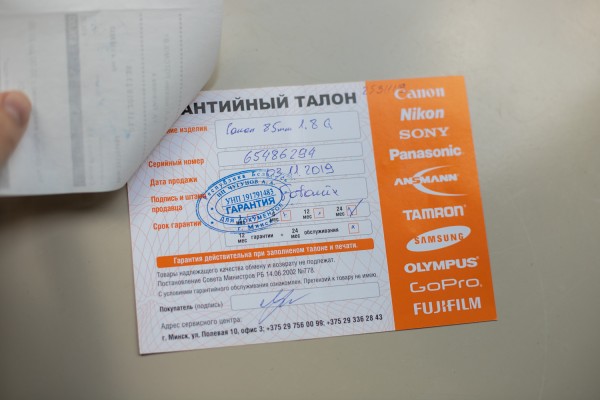 АНТИЙНЫЙ ТАЛОН
ние изделия Canon 85mm 1.8
Серийный номер 65486294
Дата продажи 03.11.2019
Подпись и штамп продавца
Республика Беларусь
УНП 191791483
ГАРАНТИЯ
Для документов
г. Минск
Срок гарантии 12 мес 24 мес
12 мес гарантии + 24 мес обслуживание
Гарантия действительна при заполненом талоне и печати.
Товары надлежащего качества обмену и возврату не подлежат.
Постановление Совета Министров РБ 14.06.2002 №778.
С условиями гарантийного обслуживания ознакомлен. Претензий к товару не имею.
Покупатель (подпись)
Адрес сервисного центра:
г. Минск, ул. Полевая 10, офис 3; +375 29 756 00 99; +375 29 336 28 43
Canon
Nikon
SONY
Panasonic
ANSMANN
TAMRON
SAMSUNG
OLYMPUS
GoPro
FUJIFILM